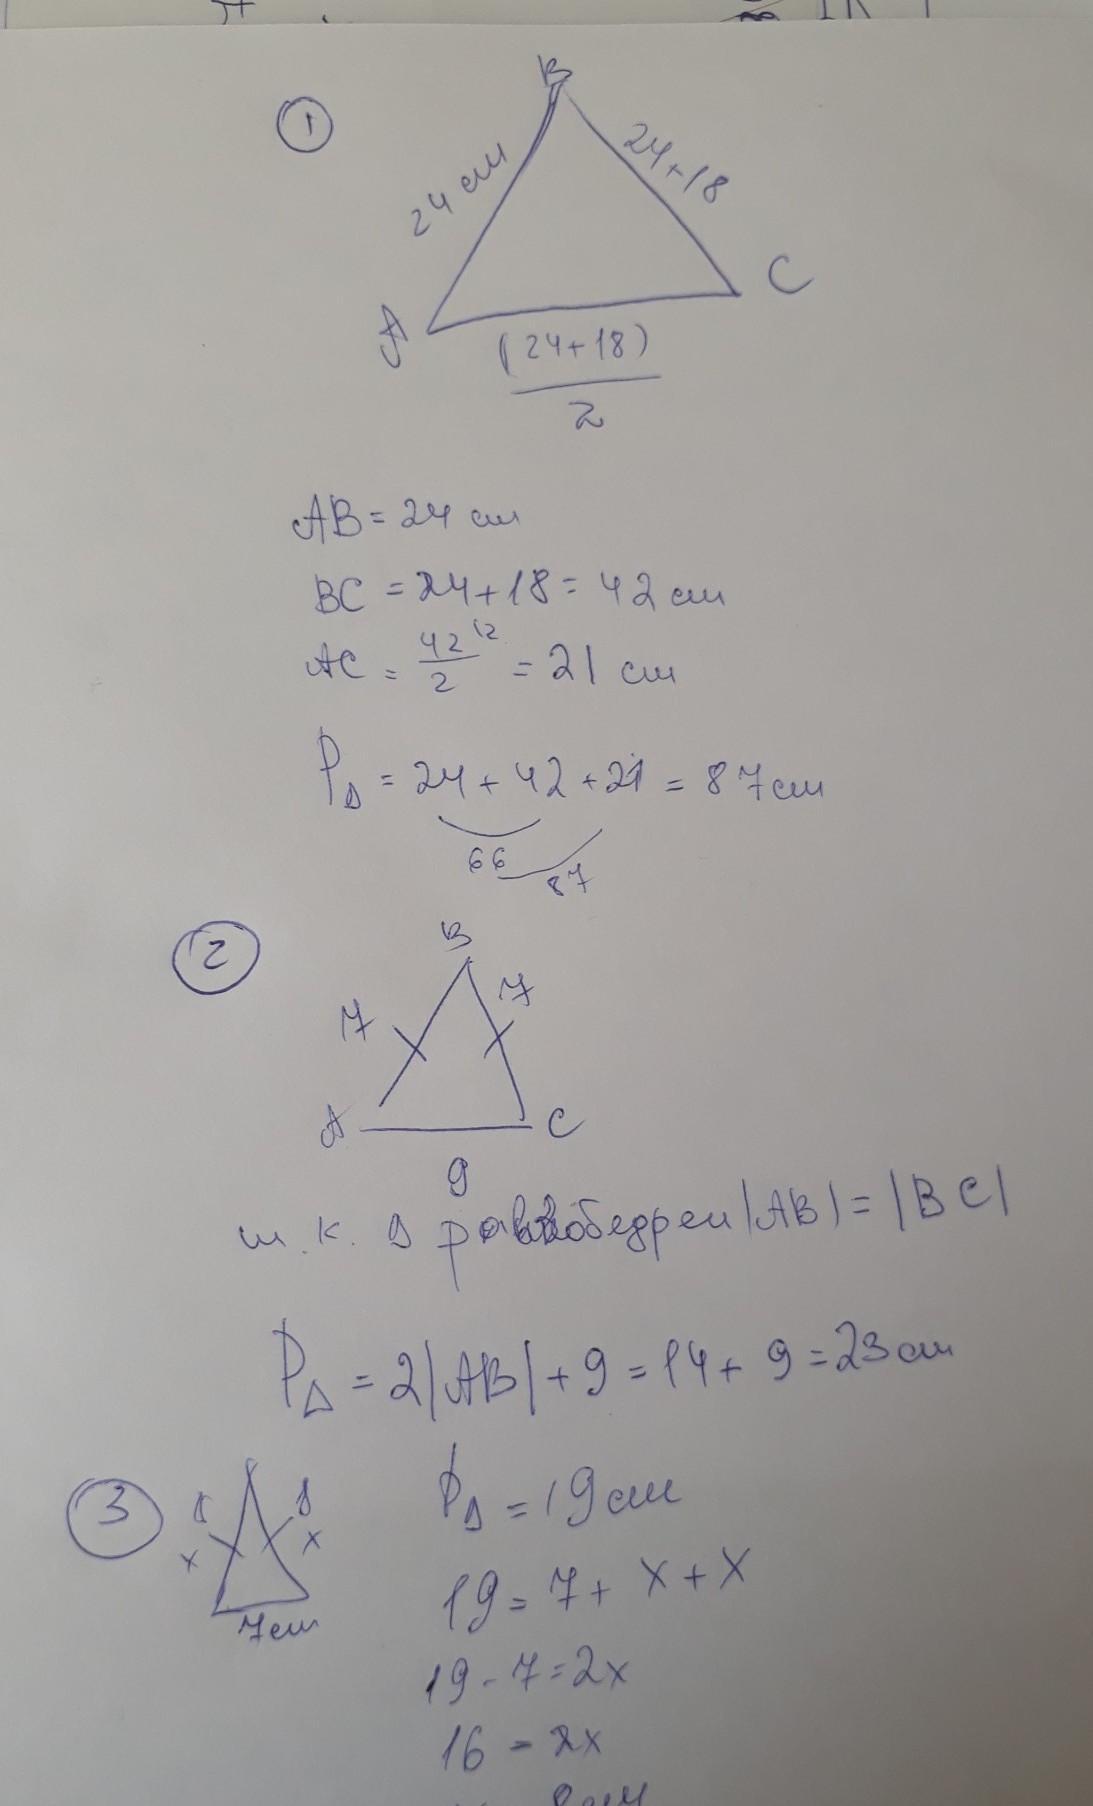 1
B
24 см
24+18
A
C
(24+18)
2
AB = 24 см
BC = 24+18 = 42 см
AC = 42/2 = 21 см
P△ = 24 + 42 + 21 = 87 см
66
87
2
B
7 7
A C
9
т.к. равнобедрен |AB| = |BC|
P△ = 2|AB| + 9 = 14 + 9 = 23 см
3
8 8
x x
7 см
P△ = 19 см
19 = 7 + x + x
19 - 7 = 2x
16 = 2x